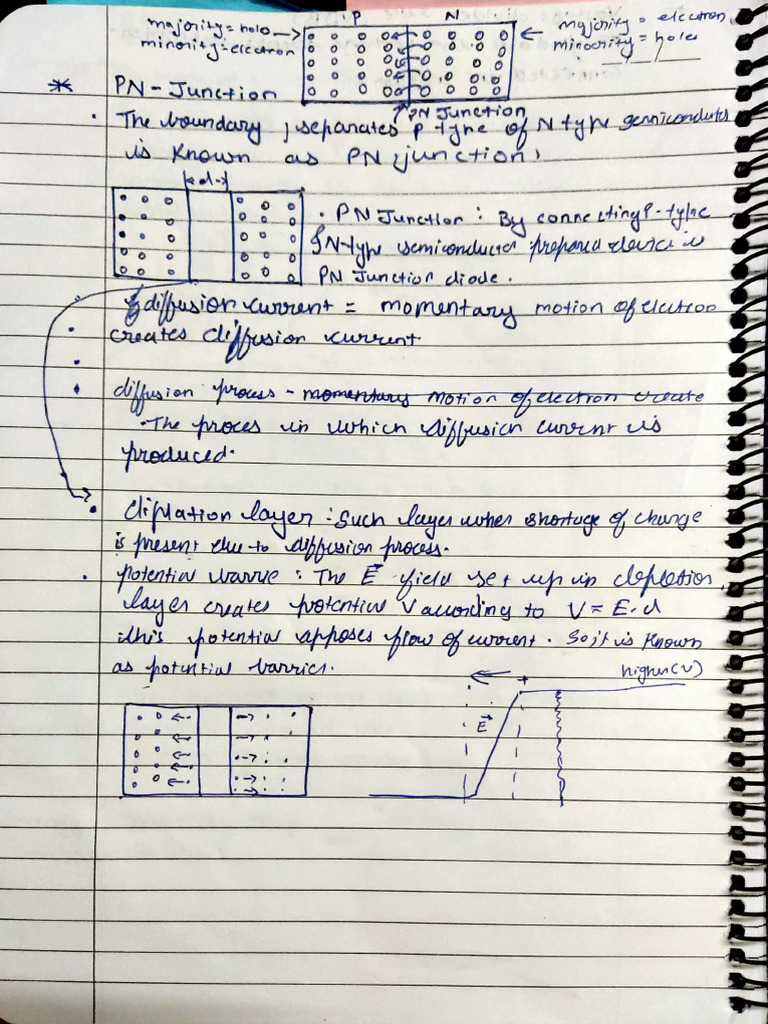 majority = holo P N majority = electron
minority = electron minority = holes
* PN - Junction
PN Junction
The boundary , separates P type of N type semiconductor
is known as PN junction,
d
PN Junction : By connecting P-type
& N-type semiconductor prepared device is
PN Junction diode.
diffusion current = momentary motion of electron
creates diffusion current
diffusion process - momentary motion of electron create
The proces in which diffusion current is
produced.
diplation layer : Such layer when shortage of charge
is present due to diffusion process.
potential barrie : The E⃗ field set up in depletion
layer creates potential V according to V = E.d
this potential apposes flow of current. So it is known
as potential barrier.
higher(v)
+
E⃗